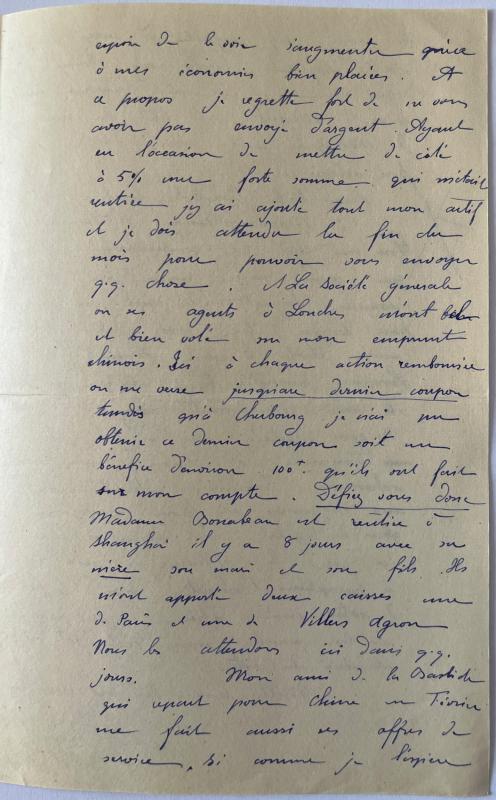 espoir de le voir s'augmenter grâce
à mes économies bien placées. A
ce propos je regrette fort de ne vous
avoir pas envoyé d'argent. Ayant
eu l'occasion de mettre de côté
à 5% une forte somme qui m'était
rentrée j'y ai ajouté tout mon actif
et je dois attendre la fin du
mois pour pouvoir vous envoyer
q.q. chose. A La Société générale
ou ses agents à Londres m'ont bel
et bien volé sur mon emprunt
chinois. Ici à chaque action remboursée
on me verse jusqu'au dernier coupon
tandis qu'à Cherbourg je n'ai pu
obtenir ce dernier coupon soit un
bénéfice d'environ 100f. qu'ils ont fait
sur mon compte. Défiez vous donc
Madame est rentrée à
Shanghaï il y a 8 jours avec sa
mère son mari et son fils. Ils
m'ont apporté deux caisses une
de Paris et une de Villers Agron
Nous les attendons ici dans q.q.
jours. Mon ami de la Bastide
qui repart pour Chine en Février
me fait aussi ses offres de
service, si comme je l'espère